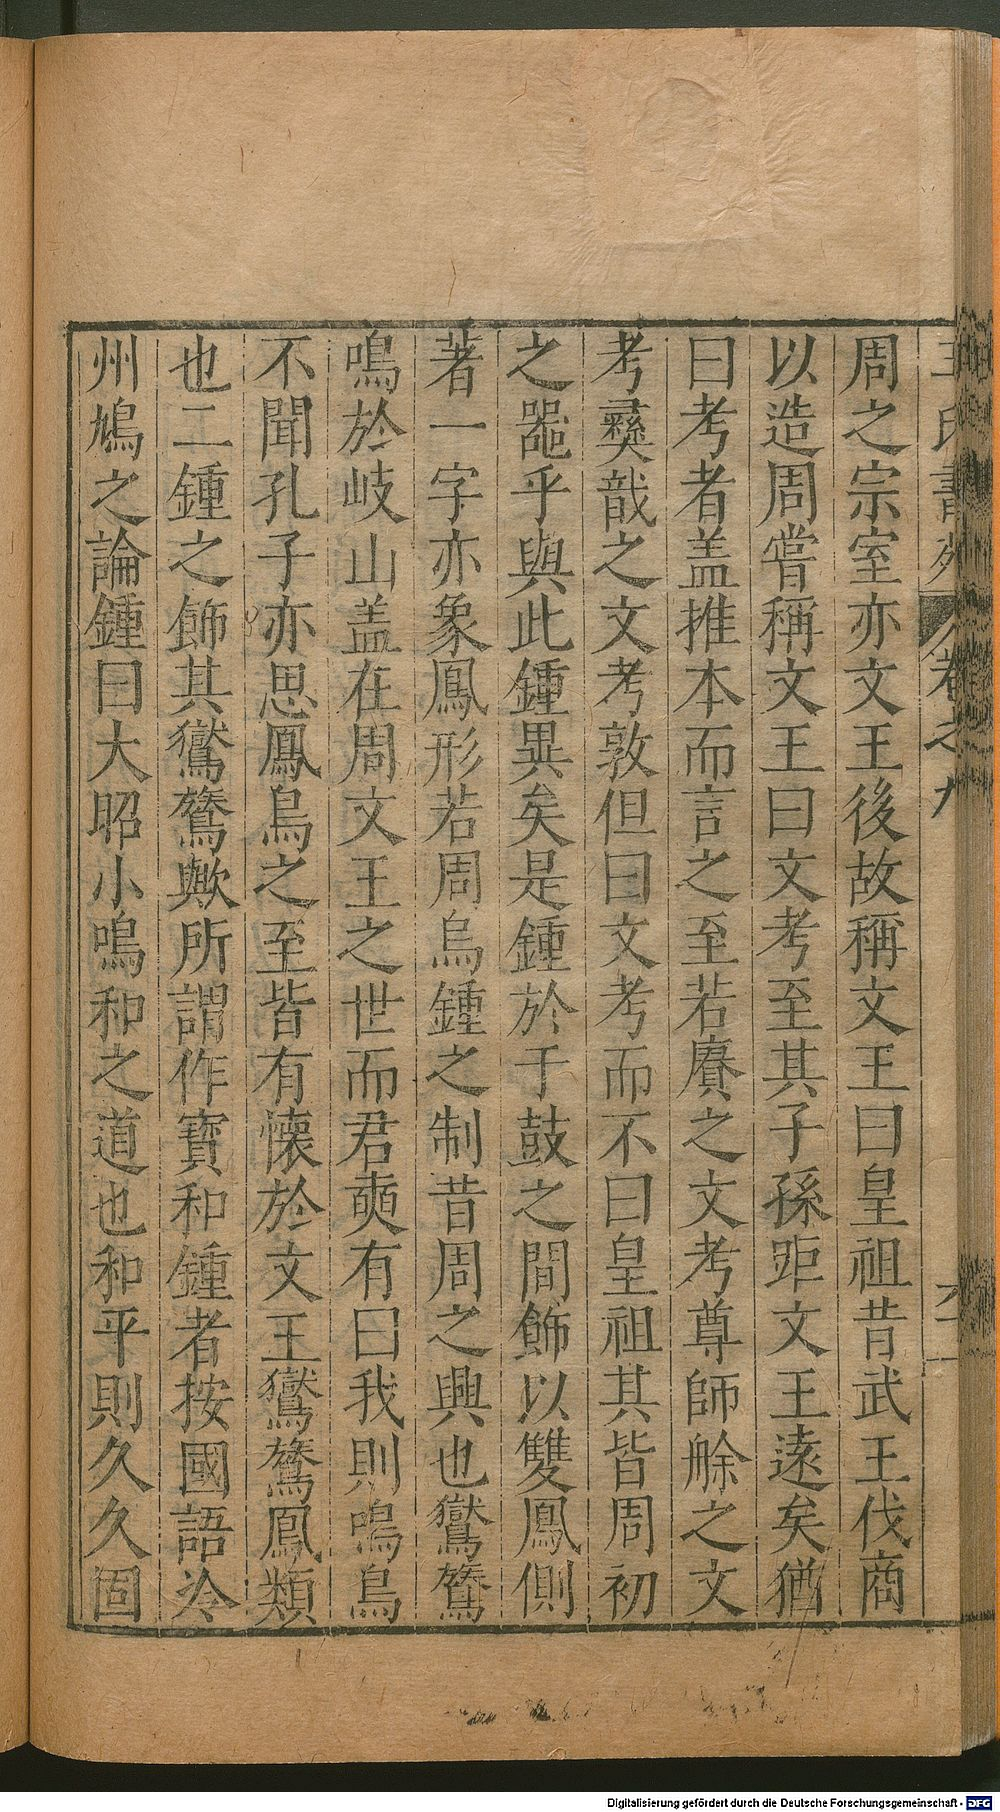 王氏書苑　卷之九
周之宗室亦文王後故稱文王曰皇祖昔武王伐商
以造周嘗稱文王曰文考至其子孫距文王遠矣猶
曰考者盖推本而言之至若賡之文考尊師艅之文
考彞敔之文考敦但曰文考而不曰皇祖其皆周初
之噐乎與此鍾異矣是鍾於于鼓之間飾以雙鳳側
著一字亦象鳳形若周烏鍾之制昔周之興也鸑鷟
鳴於岐山盖在周文王之世而君奭有曰我則鳴鳥
不聞孔子亦思鳳鳥之至皆有懷於文王鸑鷟鳳類
也二鍾之飾其鸑鷟歟所謂作寶和鍾者按國語泠
州鳩之論鍾曰大昭小鳴和之道也和平則久久固
Digitalisierung gefördert durch die Deutsche Forschungsgemeinschaft - DFG